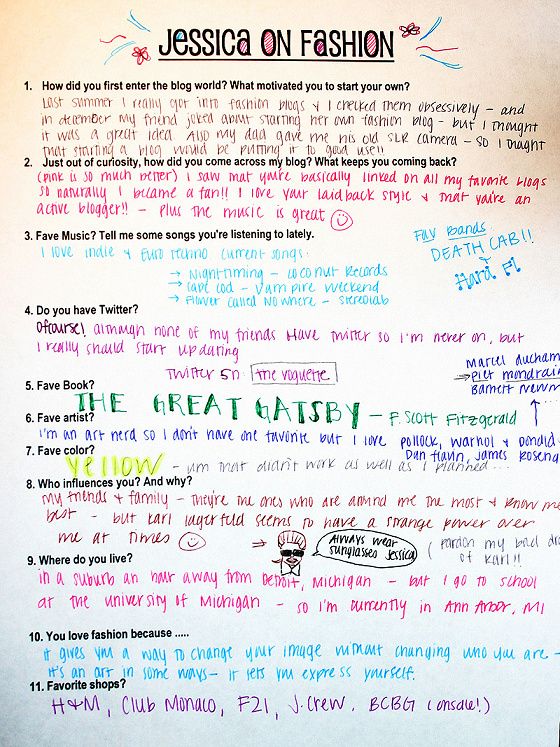 JESSICA ON FASHION
1. How did you first enter the blog world? What motivated you to start your own?
Last summer I really got into fashion blogs & I checked them obsessively - and
in december my friend joked about starting her own fashion blog - but I thought
it was a great idea. Also my dad gave me his old SLR camera - so I thought
that starting a blog would be putting it to good use!!
2. Just out of curiosity, how did you come across my blog? What keeps you coming back?
(pink is so much better) I saw that you're basically linked on all my favorite blogs
so naturally I became a fan!! I love your laid back style & that you're an
active blogger!! - plus the music is great
3. Fave Music? Tell me some songs you're listening to lately.
I love indie & Euro techno current songs:
→ Nighttiming - coconut Records
→ Cape Cod - Vampire Weekend
→ Flower called Nowhere - stereolab
Fav bands
DEATH CAB!!
Hard Fi
4. Do you have Twitter?
Ofcourse! although none of my friends Have twitter so I'm never on, but
I really should start updating
Twitter SN: the voguette
5. Fave Book?
THE GREAT GATSBY - F. Scott Fitzgerald
Marcel ducham
→ Piet mondrain
Barnett Newm
6. Fave artist?
I'm an art nerd so I don't have one favorite but I love pollock, warhol & donald
Dan flavin, James Rosenq
7. Fave color?
Yellow - um that didn't work as well as I planned...
8. Who influences you? And why?
my friends & family - they're the ones who are around me the most & know me
best - but karl lagerfeld seems to have a strange power over
me at times
Always wear sunglasses Jessica
(pardon my bad dr
of Karl!!
9. Where do you live?
in a suburb an hour away from Detroit, Michigan - but I go to school
at the university of Michigan - so I'm currently in Ann Arbor, MI
10. You love fashion because .....
it gives you a way to change your image without changing who you are -
it's an art in some ways - it lets you express yourself.
11. Favorite shops?
H&M, Club Monaco, F21, J.Crew, BCBG (onsale!)